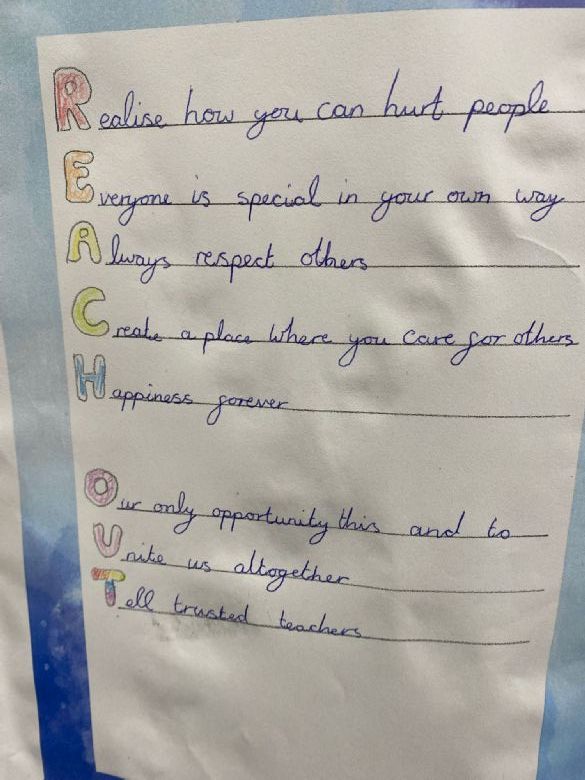 Realise how you can hurt people
Everyone is special in your own way
Always respect others
Create a place where you care for others
Happiness forever
Our only opportunity this and to
Unite us altogether
Tell trusted teachers